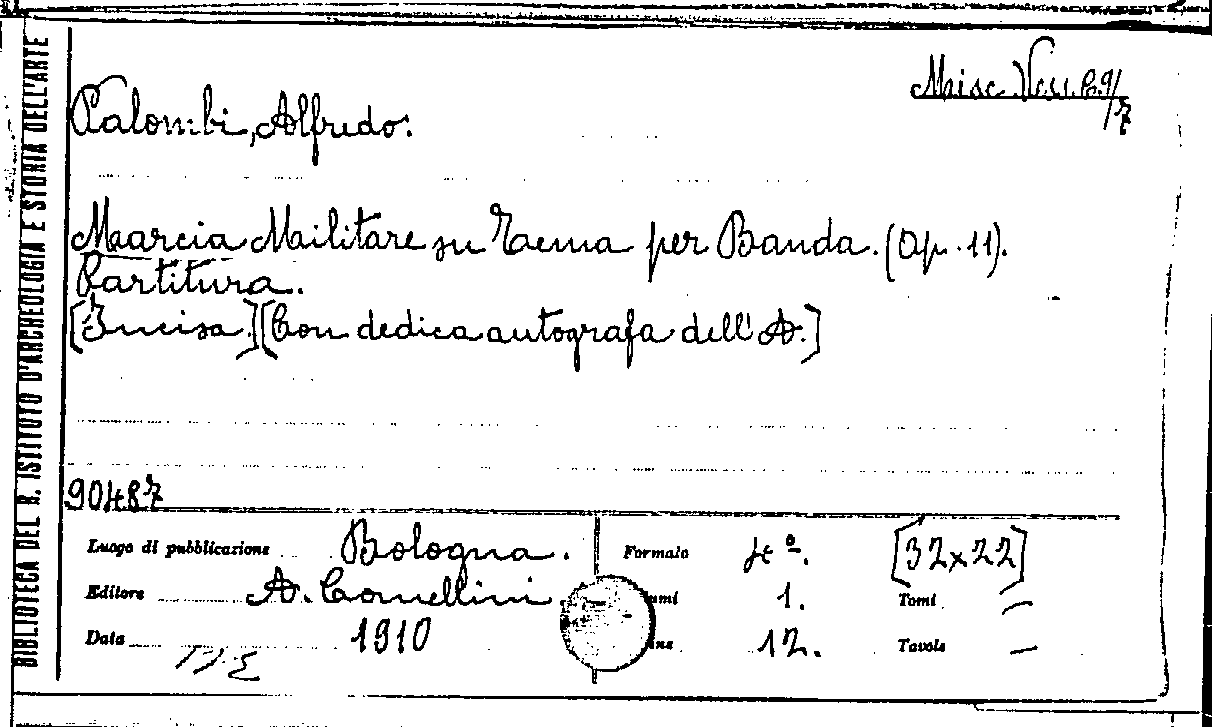 BIBLIOTECA DEL R. ISTITUTO D'ARCHEOLOGIA E STORIA DELL'ARTE
Misc. Vess. C.9/7
Palombi, Alfredo.
Marcia Militare su Tema per Banda. (Op. 11).
Partitura.
[Incisa.] [Con dedica autografa dell'A.]
90487
Luogo di pubblicazione Bologna. Formato 4º. [32x22]
Editore A. Comellini 1. Tomi —
Data 1910 12. Tavole —